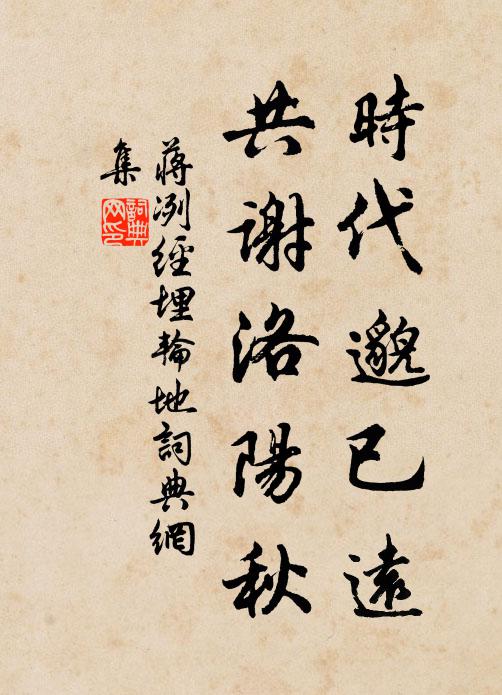 時代邈已遠
共謝洛陽秋
蔣冽經埋輪地詞典網
集
詞典網印